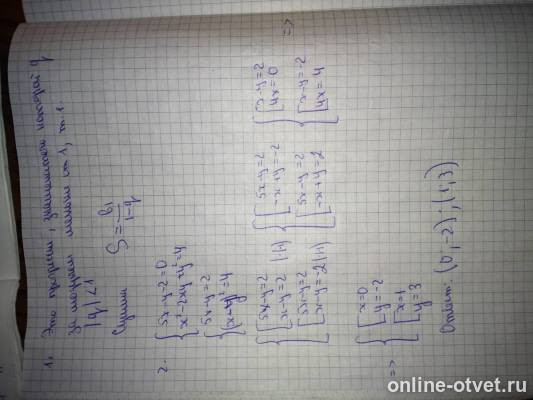 1. Это прогрессия, знаменатель которой q
по модулю меньше 1, т.е.
|q|<1
Сумма S = b₁/(1-q)
2. { 5x-y-2=0
x²-2xy+y²=4
{ 5x-y=2
(x-y)²=4
{ [ 5x-y=2
x-y=2 |(-1)
[ 5x-y=2
x-y=-2 |(-1)
{ [ 5x-y=2
-x+y=-2
[ 5x-y=2
-x+y=2
{ [ x-y=2
4x=0
[ x-y=-2
4x=4
=>
=> { [ x=0
y=-2
[ x=1
y=3
Ответ: (0;-2);(1,3)
online-otvet.ru